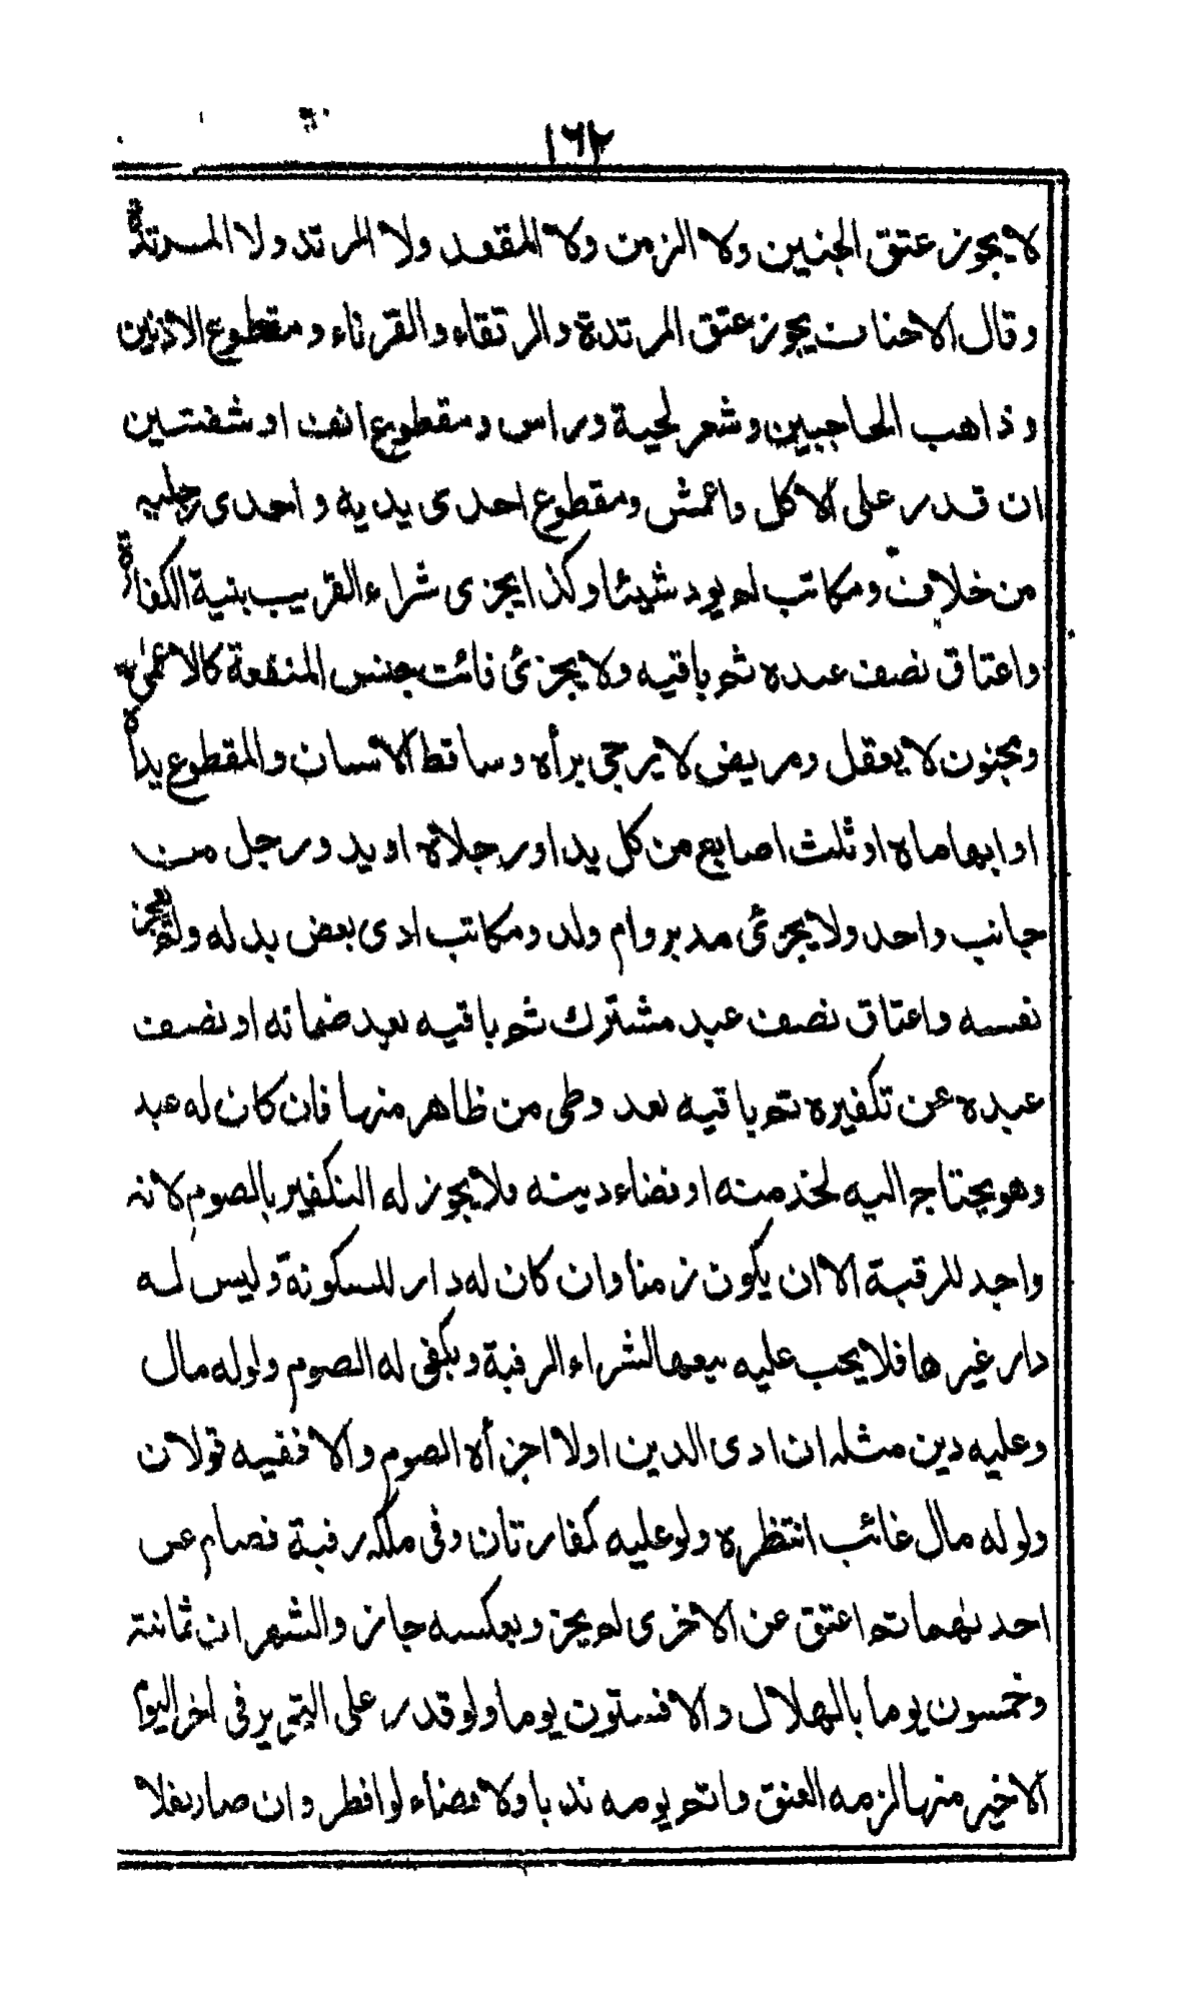 ١٦٢
لا يجوز عتق الجنين ولا الزمن ولا المقعد ولا المرتد ولا المسرتدة
وقال الاحناف يجوز عتق المرتدة والرتقاء والقرناء ومقطوع الاذنين
وذاهب الحاجبين وشعر لحية وراس ومقطوع انف او شفتين
ان قدر على الاكل واعمش ومقطوع احدى يديه واحدى رجليه
من خلاف ومكاتب لم يود شيئا وكذا يجزى شراء القريب بنية الكفارة
واعتاق نصف عبده ثم باقيه ولا يجزئ فائت جنس المنفعة كالاعمى
ومجنون لا يعقل ومريض لا يرجى برأه وساقط الاسنان والمقطوع يداه
او ابهاماه او ثلث اصابع من كل يد او رجلاه او يد ورجل من
جانب واحد ولا يجزئ مدبر وام ولد ومكاتب ادى بعض بدله ولم يعجز
نفسه واعتاق نصف عبد مشترك ثم باقيه بعد ضمانه او نصف
عبده عن تكفيره ثم باقيه بعد وطى من ظاهر منها فان كان له عبد
وهو يحتاج اليه لخدمته او قضاء دينه فلا يجوز له التكفير بالصوم لانه
واجد للرقبة الا ان يكون زمنا وان كان له دار للسكونة وليس له
دار غيرها فلا يجب عليه بيعها لشراء الرقبة ويكفى له الصوم ولو له مال
وعليه دين مثله ان ادى الدين اولا اجزأه الصوم والا ففيه قولان
ولو له مال غائب انتظره ولو عليه كفارتان وفى ملكه رقبة فصام عن
احدىهما ثم اعتق عن الاخرى لم يجز وبعكسه جاز والشهران ثمانية
وخمسون يوما بالهلال والا فستون يوما ولو قدر على التحرير فى اخر اليوم
الاخير منها لزمه العتق واتم يومه ندبا ولا قضاء لو افطر وان صار نفلا